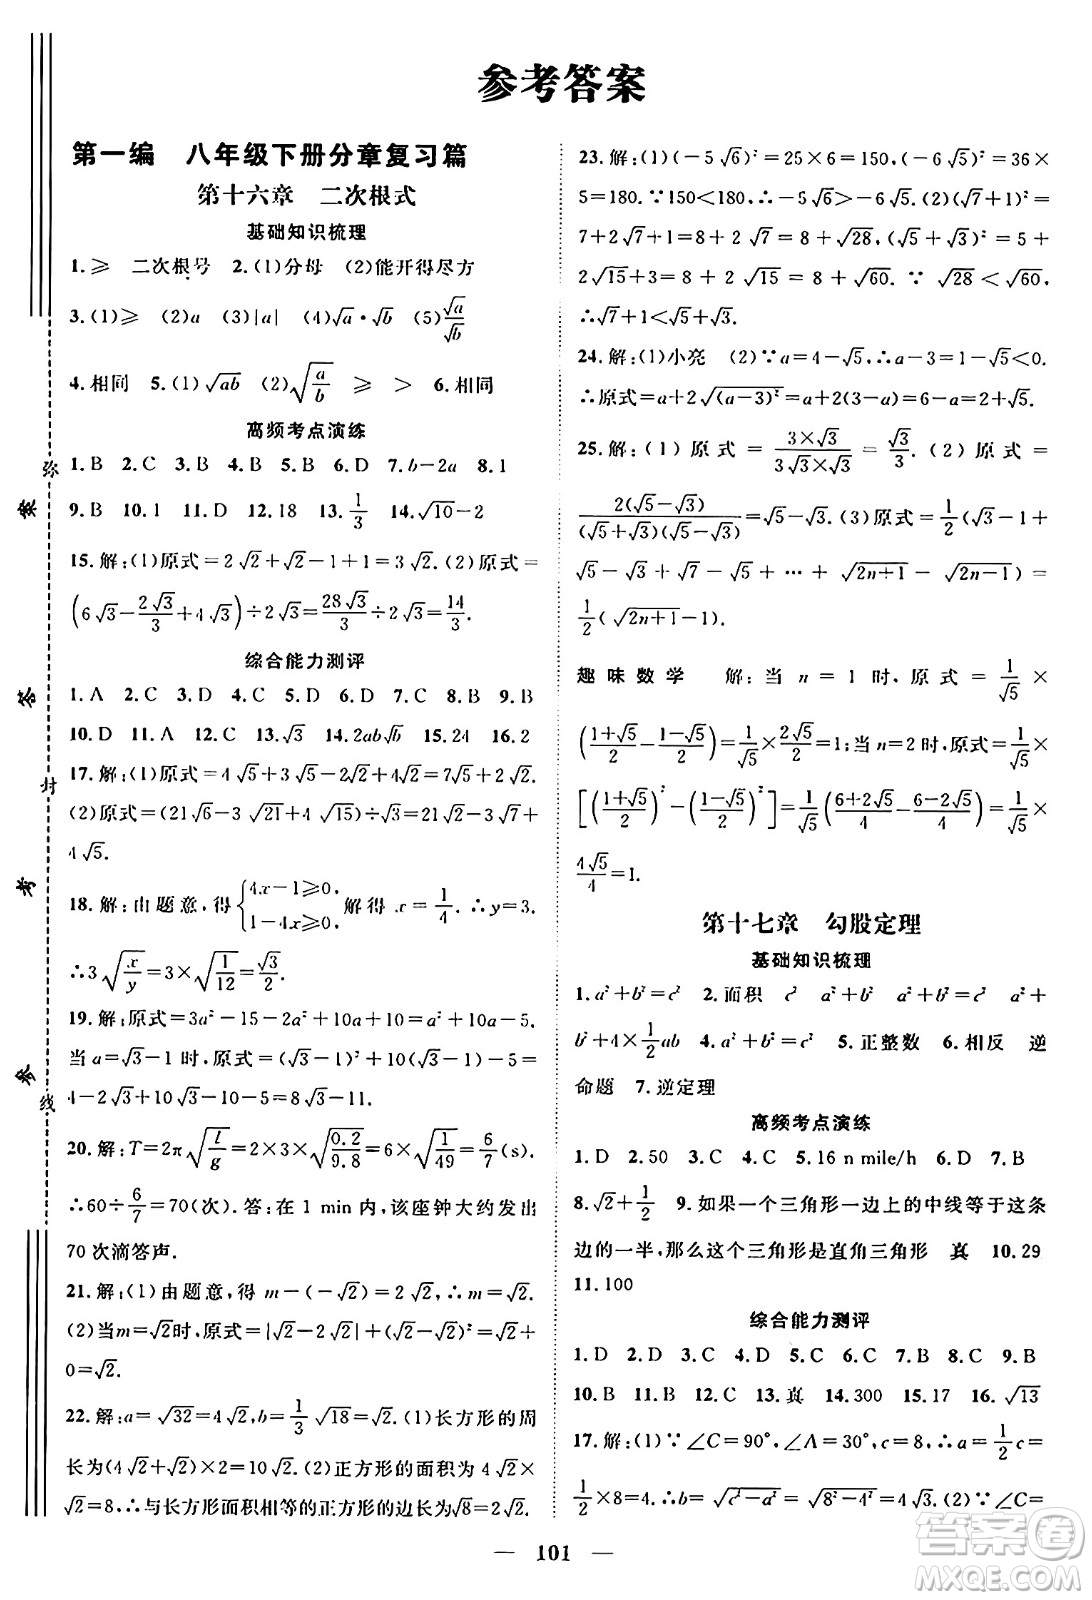 参考答案
第一编　八年级下册分章复习篇
第十六章　二次根式
基础知识梳理
1.≥　二次根号　2.(1)分母　(2)能开得尽方
3.(1)≥　(2)a　(3)|a|　(4)√a·√b　(5)√a/√b
4.相同　5.(1)√ab　(2)√(a/b)　≥　>　6.相同
高频考点演练
1.B　2.C　3.B　4.B　5.B　6.D　7.b-2a　8.1
9.B　10.1　11.D　12.18　13.1/3　14.√10-2
15.解:(1)原式=2√2+√2-1+1=3√2.(2)原式=
(6√3-2√3/3+4√3)÷2√3=28√3/3÷2√3=14/3.
综合能力测评
1.A　2.C　3.D　4.D　5.B　6.C　7.C　8.B　9.B
10.D　11.A　12.C　13.√3　14.2ab√b　15.24　16.2
17.解:(1)原式=4√5+3√5-2√2+4√2=7√5+2√2.
(2)原式=(21√6-3√21+4√15)÷√3=21√2-3√7+
4√5.
18.解:由题意,得{4x-1≥0, 1-4x≥0,解得x=1/4.∴y=3.
∴3√(x/y)=3×√(1/12)=√3/2.
19.解:原式=3a²-15-2a²+10=a²+10a²-5.
当a=√3-1时,原式=(√3-1)²+√3-1-5=
4-2√3+10√3-10-5=8√3-11.
20.解:T=2π√(l/g)=2×3×√(0.2/9.8)=6×√(1/49)=6/7(s).
∴60÷6/7=70(次).答:在1 min内,该座钟大约发出
70次滴答声.
21.解:(1)由题意,得m-(-√2)=2√2,∴m=√2.
(2)当m=√2时,原式=|√2-1|+|√2-√2|=√2+
0=√2.
22.解:a=√32=4√2,b=1/3√18=√2.(1)长方形的周
长为(4√2+√2)×2=10√2.(2)正方形的面积为4√2
×√2=8.∴与长方形面积相等的正方形的边长√8=2√2.
23.解:(1)(-5√6)²=25×6=150,(-6√5)²=36×
5=180.∵150<180,∴-5√6>-6√5.(2)(√7+1)²=
7+2√7+1=8+2√7=8+√28,(√5+√3)²=5+
2√15+3=8+2√15=8+√60.∵√28<√60,
∴√7+1<√5+√3.
24.解:(1)小亮　(2)∵a=4-√5,∴a-3=1-√5<0.
∴原式=a+2√(a-3)²=a+2(3-a)=6-a=2+√5.
25.解:(1)原式=3×√3/(3√3×√3)=√3/3.(2)原式=
2(√5-√3)/((√5+√3)(√5-√3))=√5-√3.(3)原式=1/2(√3-1+
√5-√3+√7-√5+…+√2n+1-√2n-1)=
1/2(√2n+1-1).
趣味数学　解:当n=1时,原式=1/√5×
((1+√5)/2-(1-√5)/2)=1/√5×2√5/2=1;当n=2时,原式=1/√5×
[((1+√5)/2)²-((1-√5)/2)²]=1/√5((6+2√5)/4-(6-2√5)/4)=1/√5×
4√5/4=1.
第十七章　勾股定理
基础知识梳理
1.a²+b²=c²　2.面积　c²　a²+b²　a²+b²=c²　a²+
b²+4×1/2ab　4.a²+b²=c²　5.正整数　6.相反　逆
命题　7.逆定理
高频考点演练
1.D　2.50　3.C　4.C　5.16 n mile/h　6.D　7.B
8.√2+1/2　9.如果一个三角形一边上的中线等于这条
边的一半,那么这个三角形是直角三角形　真　10.29
11.100
综合能力测评
1.D　2.D　3.C　4.D　5.C　6.A　7.B　8.C　9.C
10.B　11.C　12.C　13.真　14.300　15.17　16.√13
17.解:(1)∵∠C=90°,∠A=30°,c=8,∴a=1/2c=
1/2×8=4.∴b=√c²-a²=√8²-4²=4√3.(2)∵∠C=
— 101 —
弥
封
线
答案卷